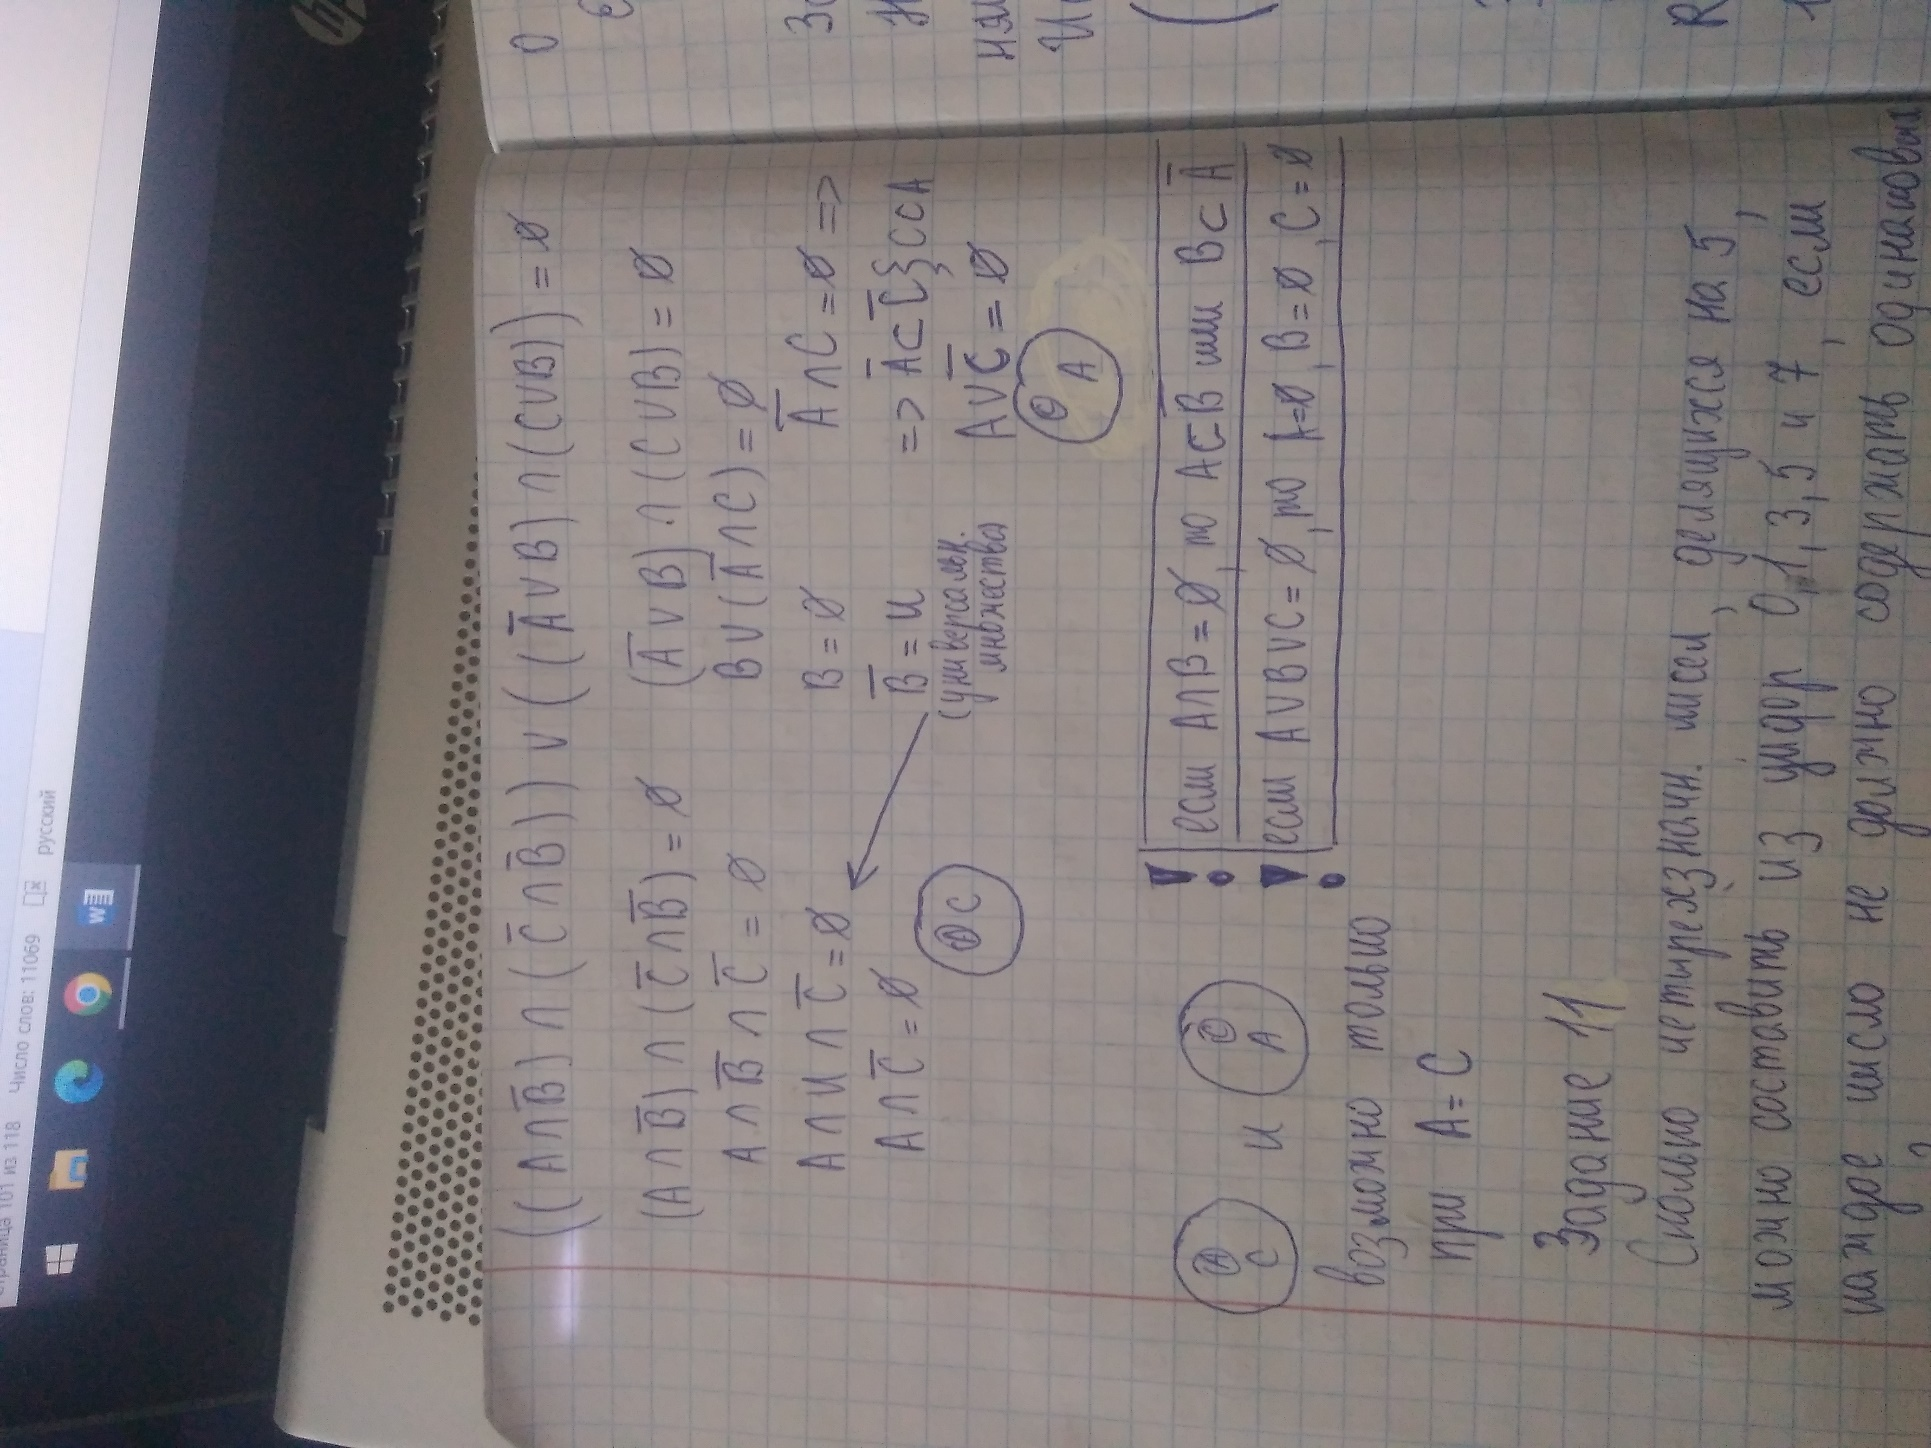 Страница 101 из 118 Число слов: 11069 русский
W
hp
((A∩B̅)∩(C̅∩B̅))∪((A̅∪B)∩(C∪B))=∅
(A∩B̅)∩(C̅∩B̅)=∅ (A̅∪B)∩(C∪B)=∅
A∩B̅∩C̅=∅ B∪(A̅∩C)=∅
A∩U∩C̅=∅ B=∅ A̅∩C=∅ =>
A∩C̅=∅ B̅=U => A̅⊂C̅{}C⊂A
(универсальн. множества A∪C̅=∅
A C C A
A C и C A
! если A∩B=∅, то A⊂B̅ или B⊂A̅
! если A∪B∪C=∅, то A=∅, B=∅, C=∅
возможно только
при A=C
Задание 11
Сколько четырехзначн. чисел, делящихся на 5,
можно составить из цифр 0,1,3,5 и 7, если
каждое число не должно содержать одинаковы